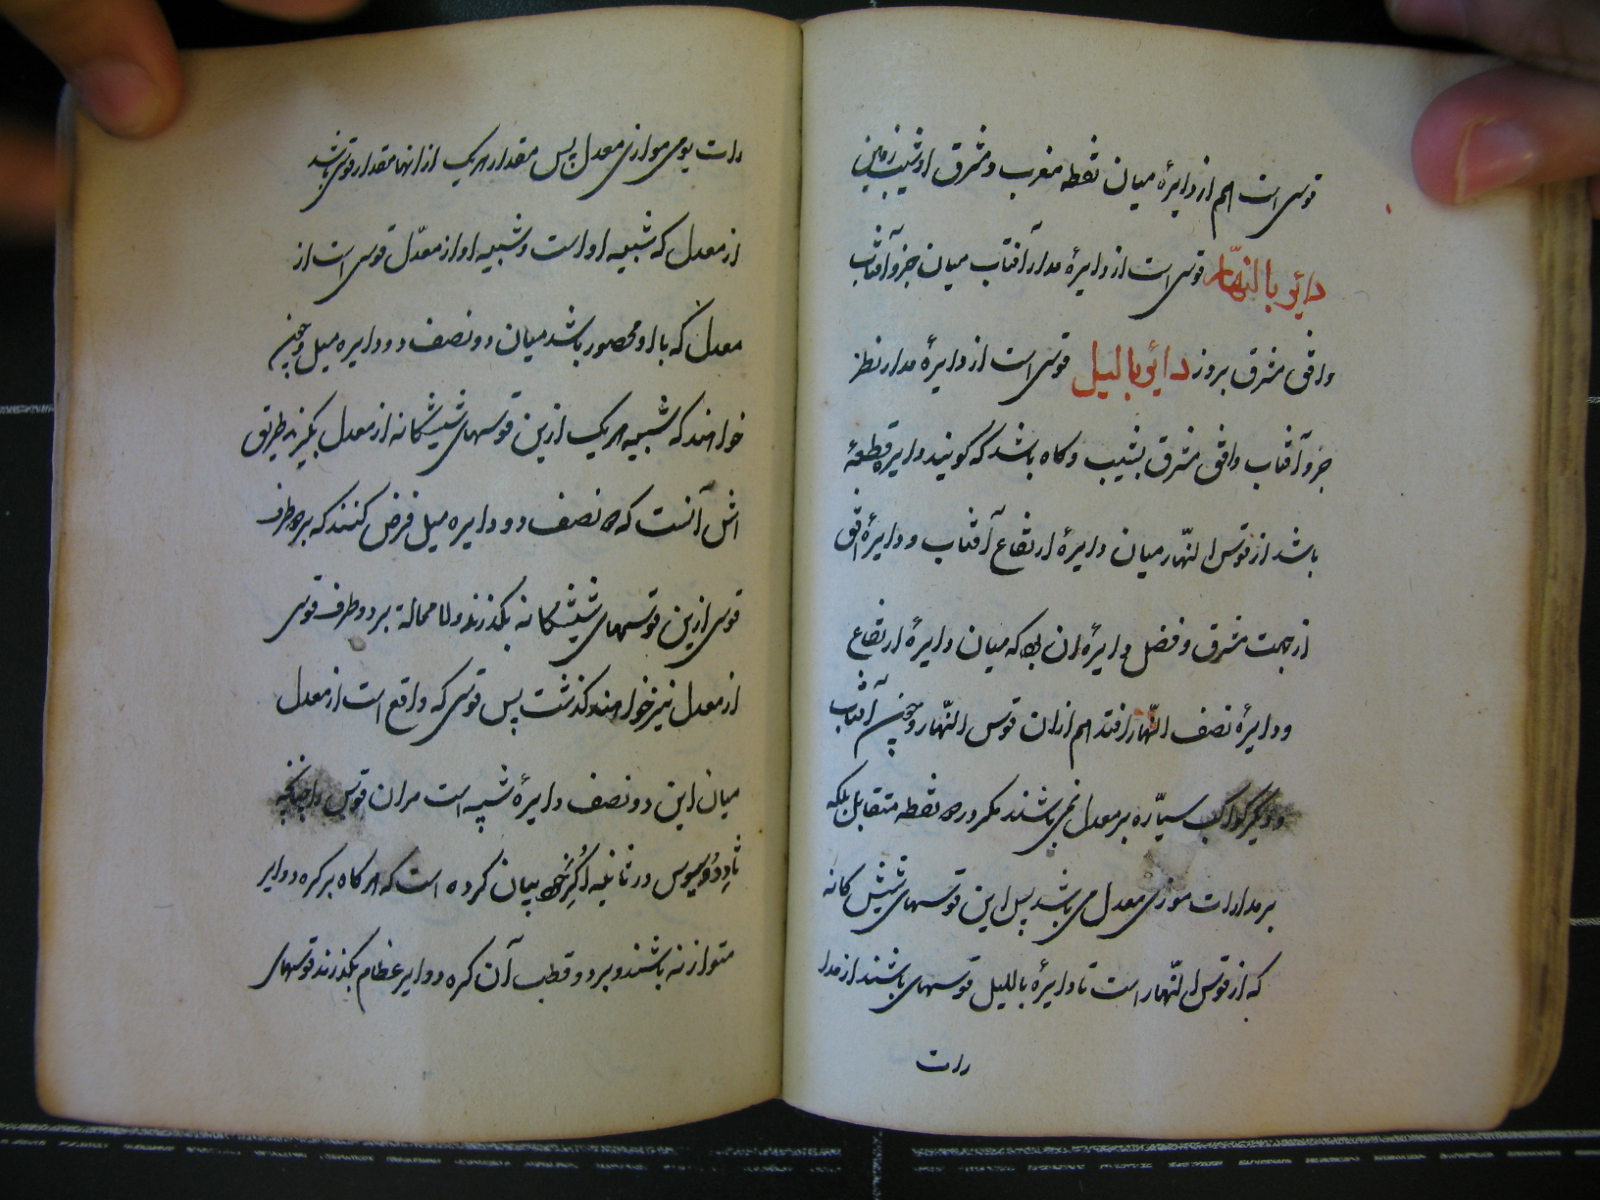 قوسی است هم از دایرهٔ میان نقطه مغرب و مشرق او شیب زمین
دائر بالنهّار قوسی است از دایرهٔ مدار آفتاب میان جزو آفتاب
وافق مشرق بروز دائر بالیل قوسی است از دایرهٔ مدار نظر
جزو آفتاب وافق مشرق بشیب و کاه باشد که کویند دایره قطعهٔ
باشد از قوس النهّار میان دایرهٔ ارتفاع آفتاب و دایرهٔ افق
از جهت مشرق و فضل دایرهٔ ان که میان دایرهٔ ارتفاع
و دایرهٔ نصف النّهار افتد هم ازان قوس النّهار و چون آفتاب
و دیکر کواکب سیّاره بر معدل نمی باشند مکر در نقطه متقابل بلکه
بر مدارات موزی معدل می باشد پس این قوسهای شیش کانه
که از قوس النّهار است تا دایرهٔ باللیل قوسهای باشند از مدا
رات
رات یومی موازی معدل پس مقدار هریک از انها مقدار قوسی باشد
از معدل که شبیه او است و شبیه او از معدّل قوسی است از
معدل که با او محصور باشد میان دو نصف دو دایره میل و چون
خواهند که شبیه هریک ازین قوسهای شیشکانه از معدل بکیرند طریق
اش آنست که نصف دو دایره میل فرض کنند که بر طرف
قوسی ازین قوسهای شیشکانه بکذرند ولا محالة بر دو طرف قوسی
از معدل نیز خواهند کذشت پس قوسی که واقع است از معدل
میان این دو نصف دایرهٔ شبیه است مران قوس را چنانچه
ثاودوسیوس در ثانیه اُکَر بیان کرده است که هرکاه بر کره دوایر
متوازنه باشند و بر دو قطب آن کره دوایر عظام بکذرند قوسهای